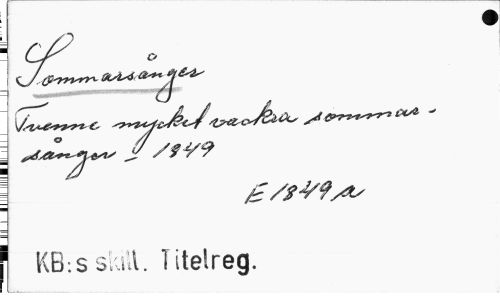 Sommarsånger
Tvenne mycket vackra sommar-
sånger – 1849
E 1849 a
KB:s skill. Titelreg.